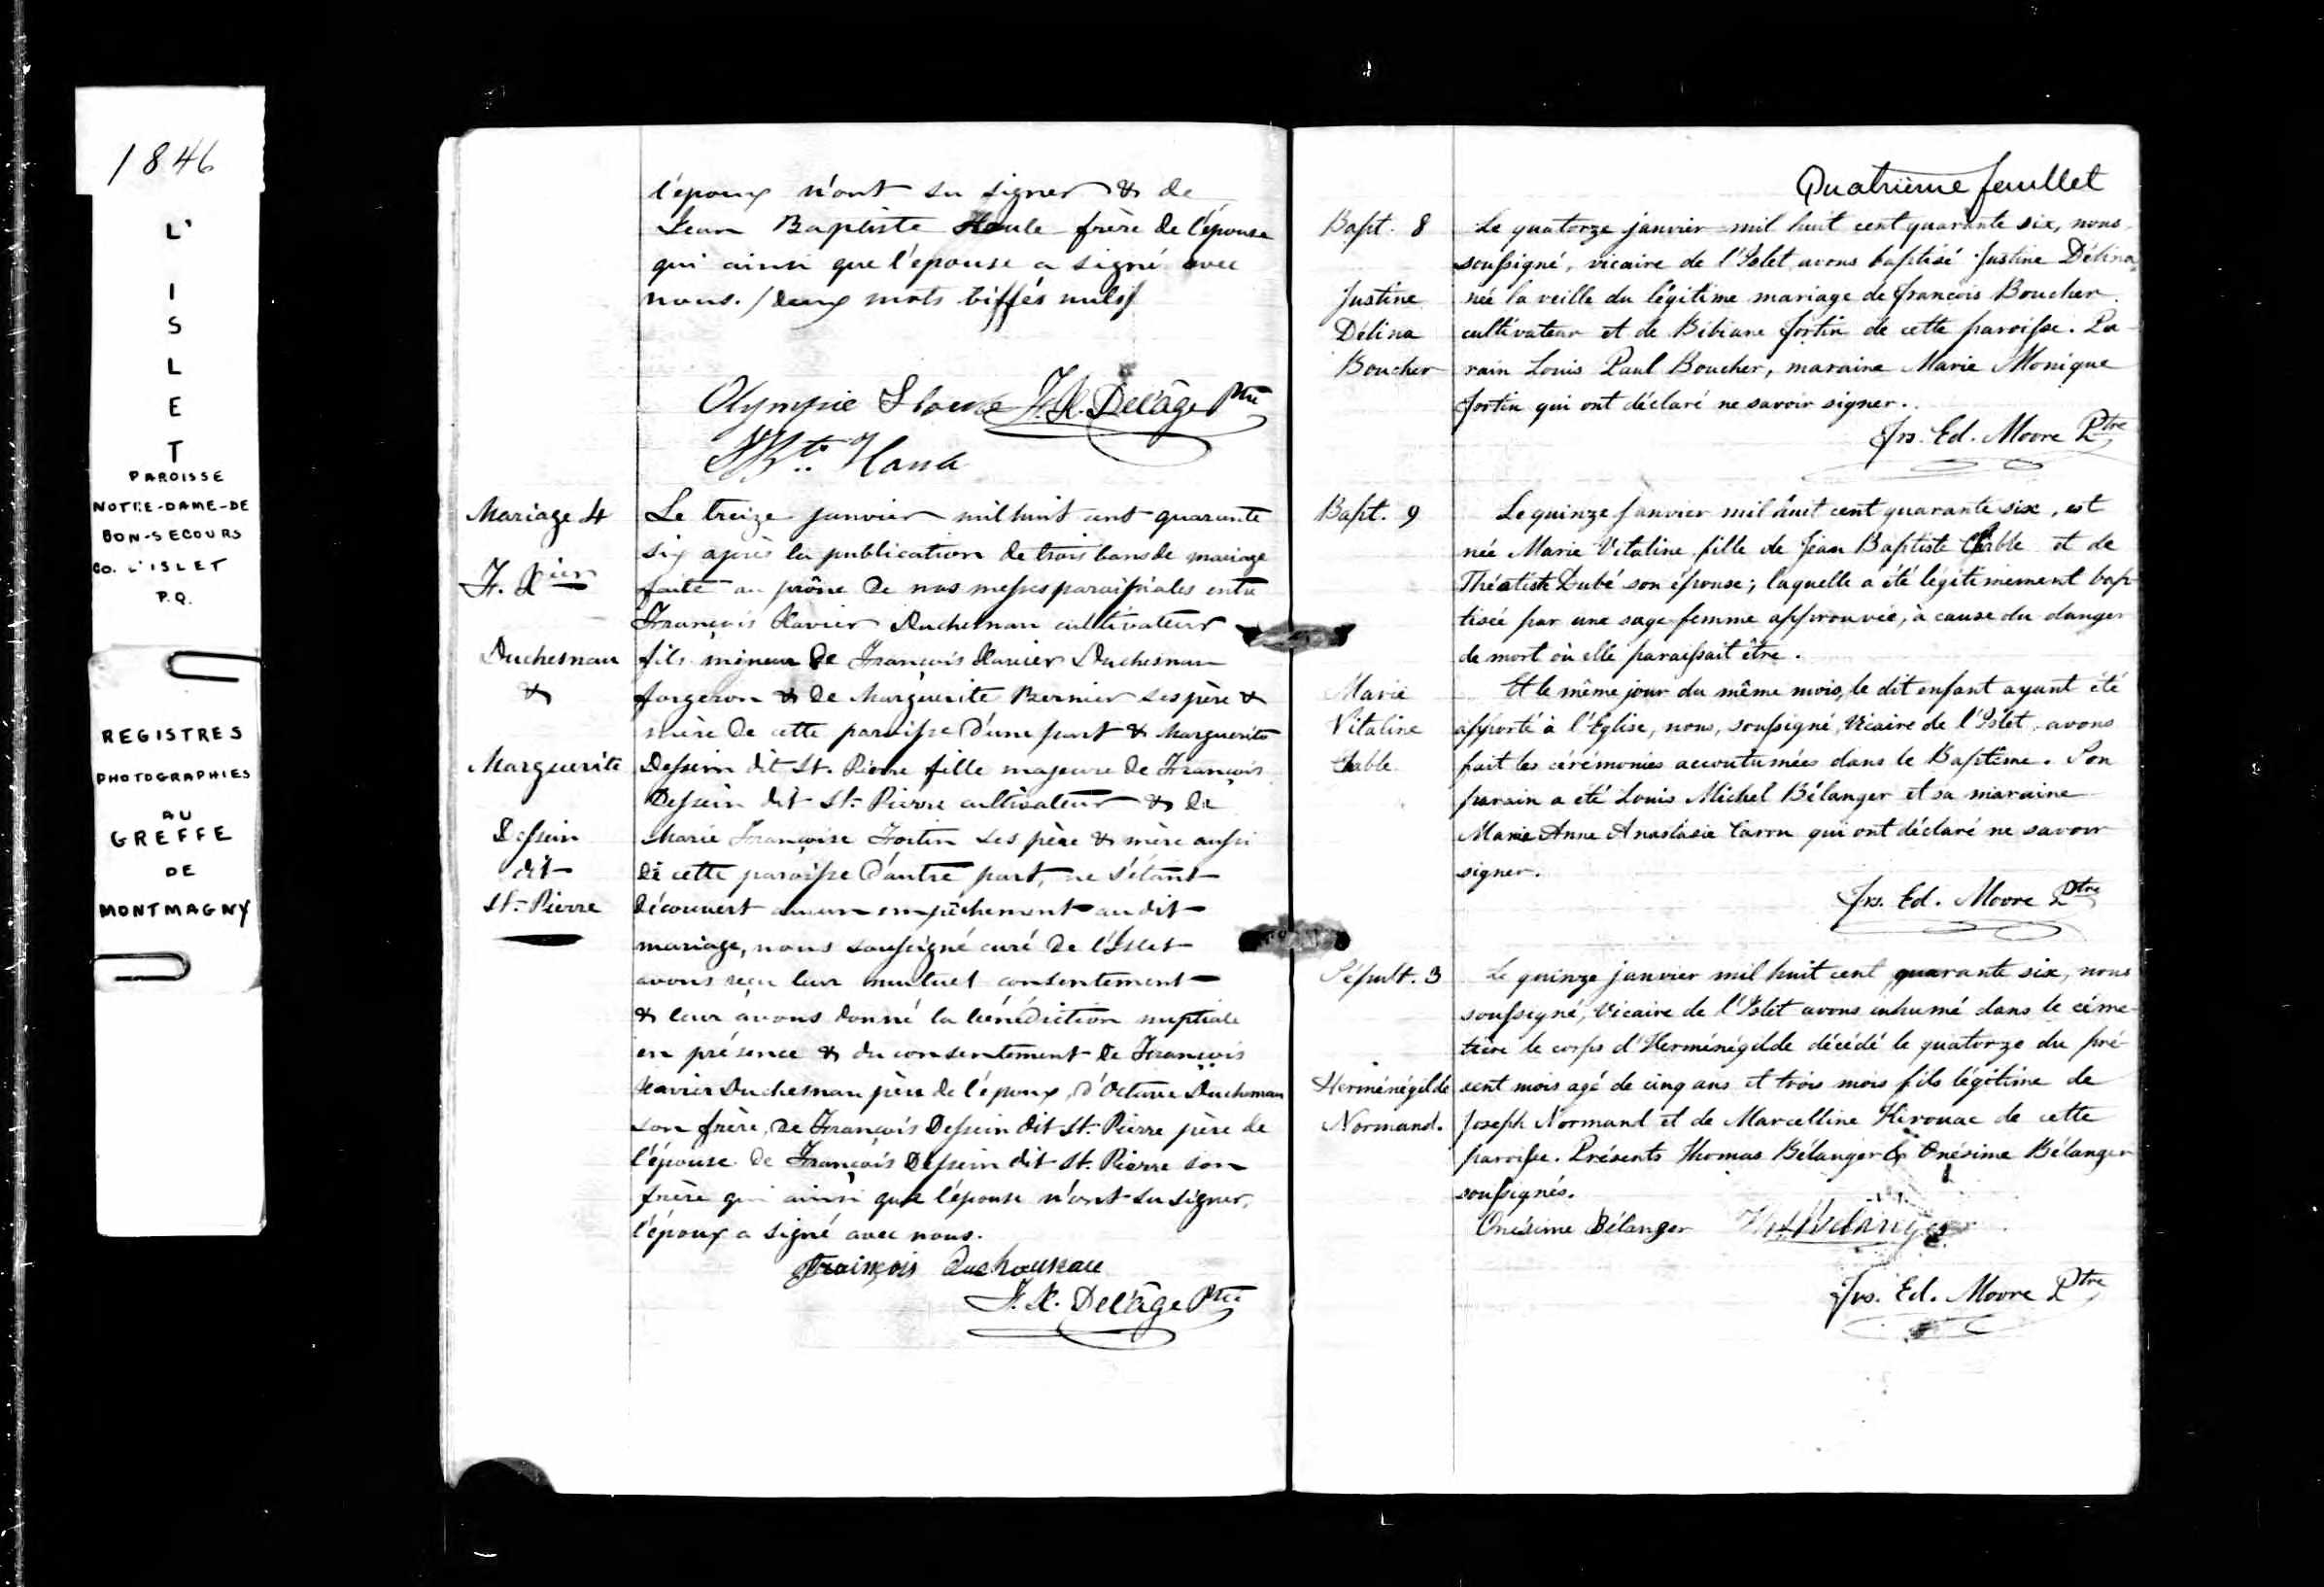 1846
L'
I
S
L
E
T
PAROISSE
NOTRE-DAME-DE
BON-SECOURS
CO. L'ISLET
P.Q.
REGISTRES
PHOTOGRAPHIES
AU
GREFFE
DE
MONTMAGNY
l'époux n'ont su signer & de
Jean Baptiste Houle frère de l'épouse
qui ainsi que l'épouse a signé avec
nous. / deux mots biffés nuls /
Olympie F. X. Delâge Ptre
JBte
Mariage 4
F. Xier
Duchesnau
&
Marguerite
Dessein
dit
St. Pierre
Le treize janvier mil huit cent quarante
six après la publication de trois bans de mariage
faite au prône de nos messes paroissiales entre
François Xavier Duchesnau cultivateur
fils mineur de François Xavier Duchesnau
forgeron & de Marguerite Bernier ses père &
mère de cette paroisse d'une part & Marguerite
Dessein dit St. Pierre fille majeure de François
Dessein dit St. Pierre cultivateur & de
Marie Françoise Fortin ses père & mère aussi
de cette paroisse d'autre part, ne s'étant
découvert aucun empêchement au dit
mariage, nous soussigné curé de l'Islet
avons reçu leur mutuel consentement
& leur avons donné la bénédiction nuptiale
en présence & du consentement de François
Xavier Duchesnau père de l'époux, d'Octave Duchesnau
son frère, de François Dessein dit St. Pierre père de
l'épouse de François Dessein dit St. Pierre son
frère qui ainsi que l'épouse n'ont su signer,
l'époux a signé avec nous.
François Duchouneau
F. X. Delâge Ptre
Quatrième feuillet
Bapt. 8
Justine
Délina
Boucher
Le quatorze janvier mil huit cent quarante six, nous
soussigné, vicaire de l'Islet avons baptisé Justine Délina,
née la veille du légitime mariage de François Boucher
cultivateur et de Bibiane Fortin de cette paroisse. Pa-
rain Louis Paul Boucher, maraine Marie Monique
Fortin qui ont déclaré ne savoir signer.
Frs. Ed. Moore Ptre
Bapt. 9
Marie
Vitaline
Chable
Le quinze janvier mil huit cent quarante six, est
née Marie Vitaline fille de Jean Baptiste Chable et de
Théotiste Dubé son épouse; laquelle a été légitimement bap-
tisée par une sage femme approuvée, à cause du danger
de mort où elle paraissait être.
Et le même jour du même mois, le dit enfant ayant été
apporté à l'Eglise, nous, soussigné, Vicaire de l'Islet avons
fait les cérémonies accoutumées dans le Baptême. Son
parain a été Louis Michel Bélanger et sa maraine
Marie Anne Anastasie Caron qui ont déclaré ne savoir
signer.
Frs. Ed. Moore Ptre
Sépult. 3
Herménégilde
Normand.
Le quinze janvier mil huit cent quarante six, nous
soussigné, Vicaire de l'Islet avons inhumé dans le cime-
tière le corps d'Herménégilde décédé le quatorze du pré-
sent mois agé de cinq ans et trois mois fils légitime de
Joseph Normand et de Marcelline Kirouac de cette
paroisse. Présents Thomas Bélanger & Onésime Bélanger
soussignés.
Onésime Bélanger
Frs. Ed. Moore Ptre